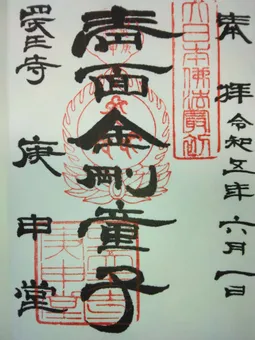 奉拝 令和五年六月一日
大日本佛法最初
青面金剛童子
四天王寺 庚申堂